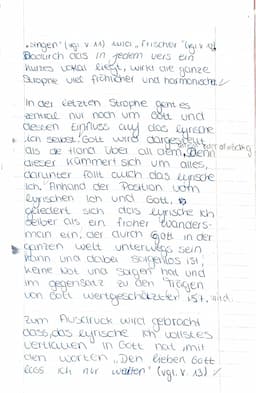 „singen" (vgl. v. 11) und „frischer" (vgl. v. 12)
Dadurch das in jedem vers ein
kurzes vokal liegt, wirkt die ganze
Strophe viel fröhlicher und harmonischer.
In der letzten Strophe geht es
zentral nur noch um Gott und
dessen Einfluss auf das lyrische
Ich selbst. Gott wird dargestellt
als die Hand über all dem, Denn
dieser kümmert sich um alles,
darunter fällt auch das lyrische
Ich. Anhand der Position vom
lyrischen Ich und Gott,
das lyrische Ich
selber als ein froher Wanders-
mann ein, der durch Gott in der
ganzen Welt unterwegs sein
kann und dabei sorgenlos ist,
keine Not und Sorgen hat und
im gegensatz zu den Trägen
von Gott wertgeschätzter ist, wird.
Zum Ausdruck wird gebracht
dass, das lyrische Ich vollstes
vertrauen in Gott hat, mit
den worten „Den lieben Gott
lass ich nur walten" (vgl. v. 13)